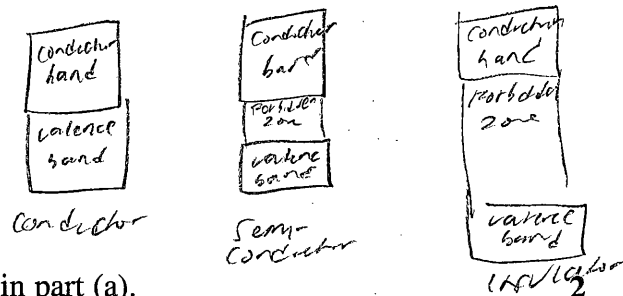 Conductor
band
valence
band
Conductor
Conductor
band
Forbidden
zone
valence
band
Semi-
Conductor
Conductor
band
Forbidden
zone
valence
band
Insulator
in part (a).
2